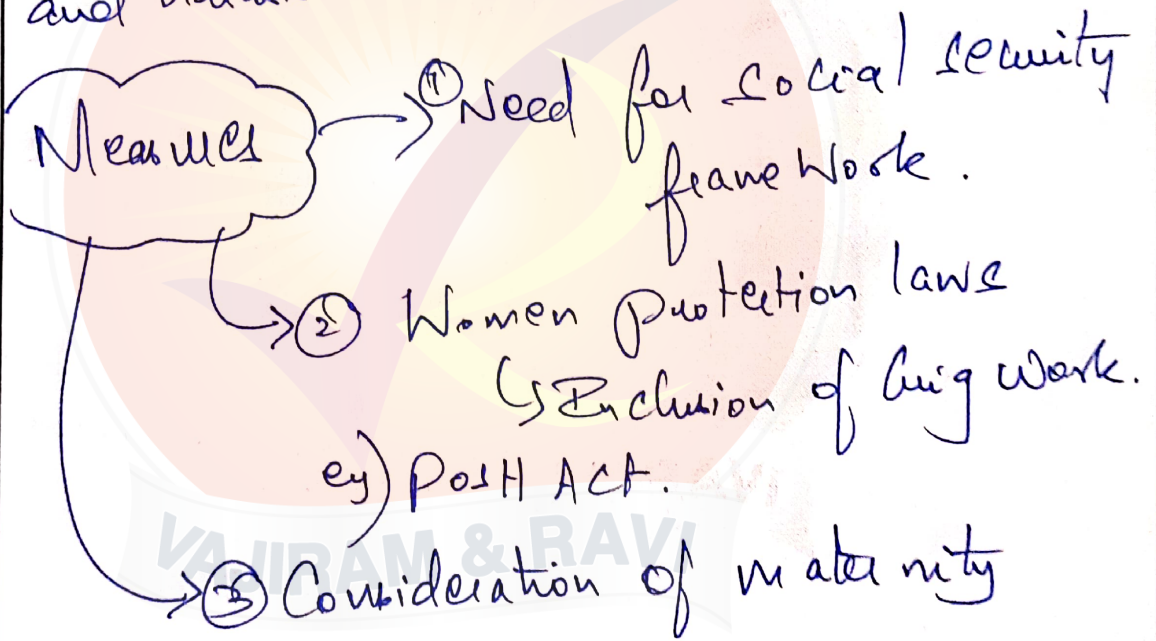 and
Measures
① Need for social security
framework.
② Women protection laws
↳ Inclusion of Guig work.
eg) POSH Act.
③ Consideration of maternity
VAJIRAM & RAVI